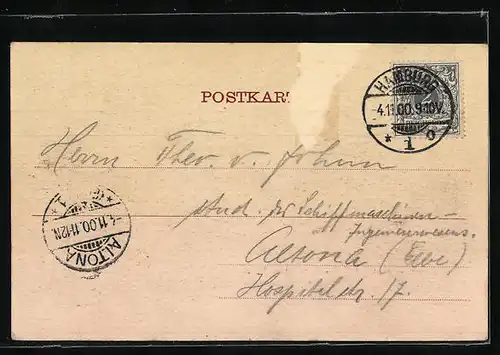 POSTKAR
HAMBURG
4.11.00.9-10V.
* 1 g
Herrn Theo. v.
stud. des Schiffmaschinen-
Ingenieurwesens.
Altona (Elbe)
Hospitalstr. 17.
4.11.00.11-12N
ALTONA